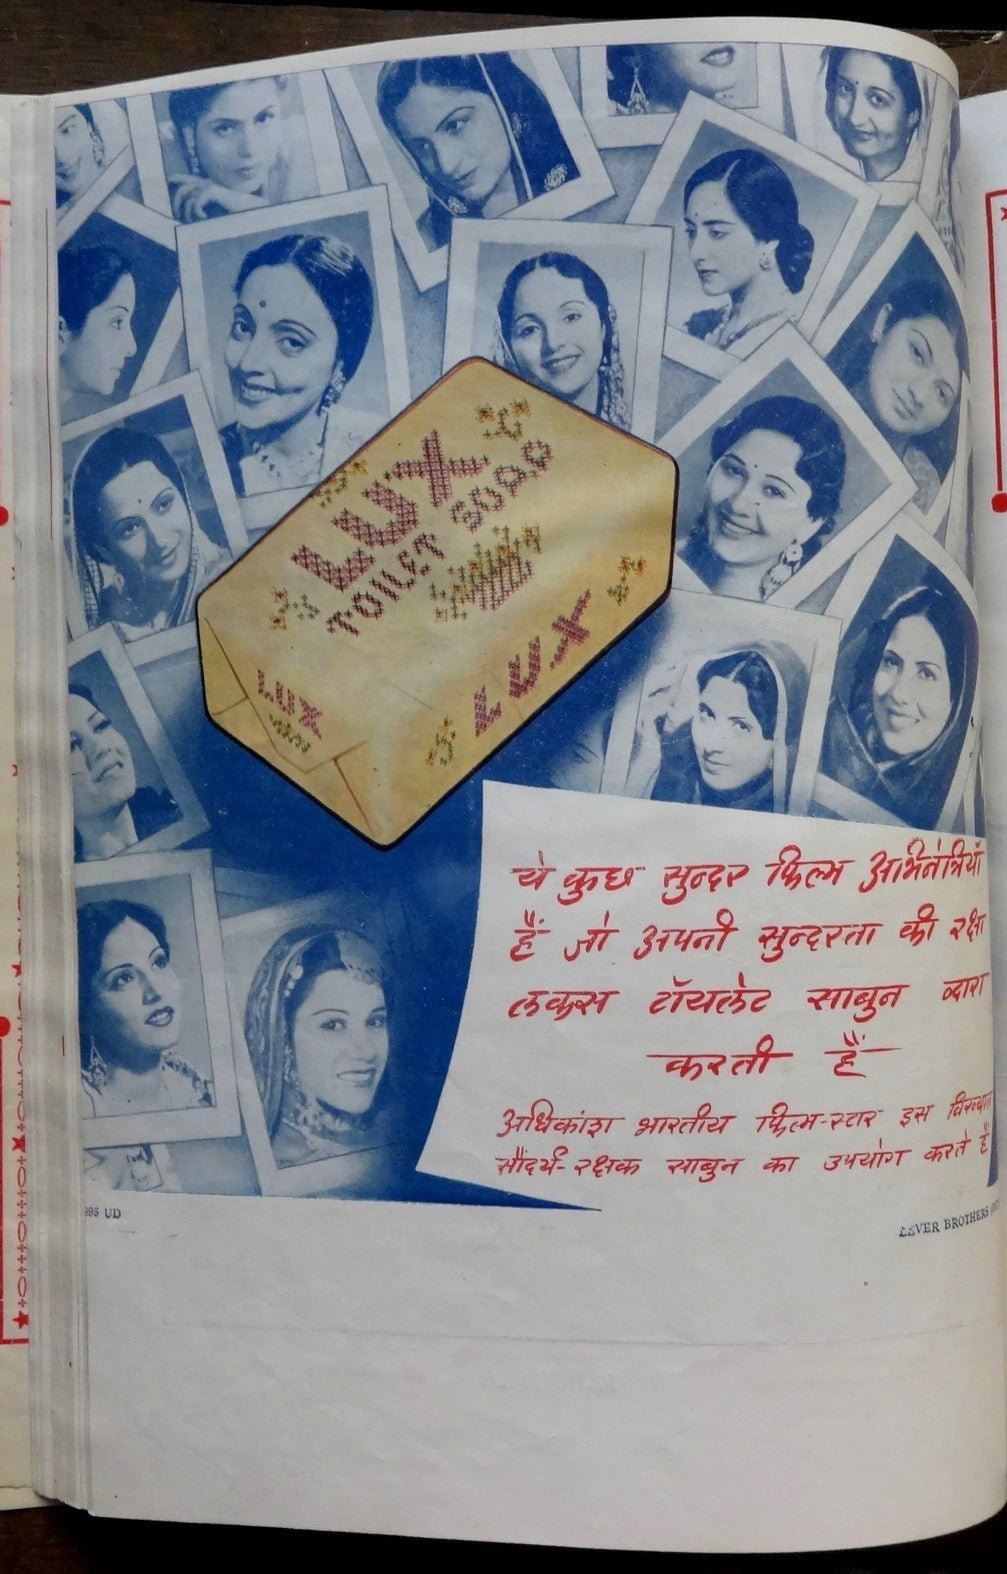 LUX
TOILET SOAP
LUX
LUX
ये कुछ सुन्दर फ़िल्म अभिनेत्रियाँ
हैं जो अपनी सुन्दरता की रक्षा
लक्स टॉयलेट साबुन द्वारा
करती हैं
अधिकांश भारतीय फ़िल्म-स्टार इस विख्यात
सौंदर्य-रक्षक साबुन का उपयोग करते हैं
395 UD
LEVER BROTHERS